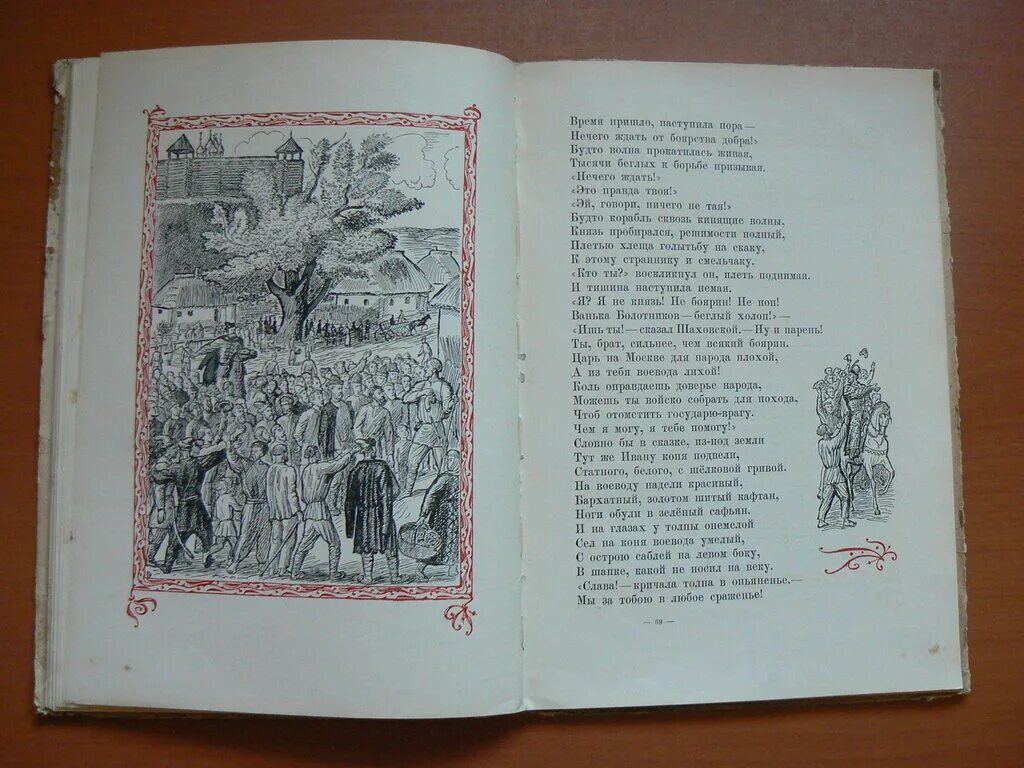 Время пришло, наступила пора —
Нечего ждать от боярства добра!»
Будто волна прокатилась живая,
Тысячи беглых к борьбе призывая.
«Нечего ждать!»
«Это правда твоя!»
«Эй, говори, ничего не тая!»
Будто корабль сквозь кипящие волны,
Князь пробирался, решимости полный,
Плетью хлеща голытьбу на скаку,
К этому страннику и смельчаку.
«Кто ты?» воскликнул он, плеть поднимая.
И тишина наступила немая.
«Я? Я не князь! Не боярин! Не поп!
Ванька Болотников — беглый холоп!» —
«Ишь ты! — сказал Шаховской. — Ну и парень!
Ты, брат, сильнее, чем всякий боярин.
Царь на Москве для народа плохой,
А из тебя воевода лихой!
Коль оправдаешь доверье народа,
Можешь ты войско собрать для похода,
Чтоб отомстить государю-врагу.
Чем я могу, я тебе помогу!»
Словно бы в сказке, из-под земли
Тут же Ивану коня подвели,
Статного, белого, с шёлковой гривой.
На воеводу надели красивый,
Бархатный, золотом шитый кафтан,
Ноги обули в зелёный сафьян.
И на глазах у толпы онемелой
Сел на коня воевода умелый,
С острою саблей на левом боку,
В шапке, какой не носил на веку.
«Слава! — кричала толпа в опьяненье. —
Мы за тобою в любое сраженье!
— 69 —